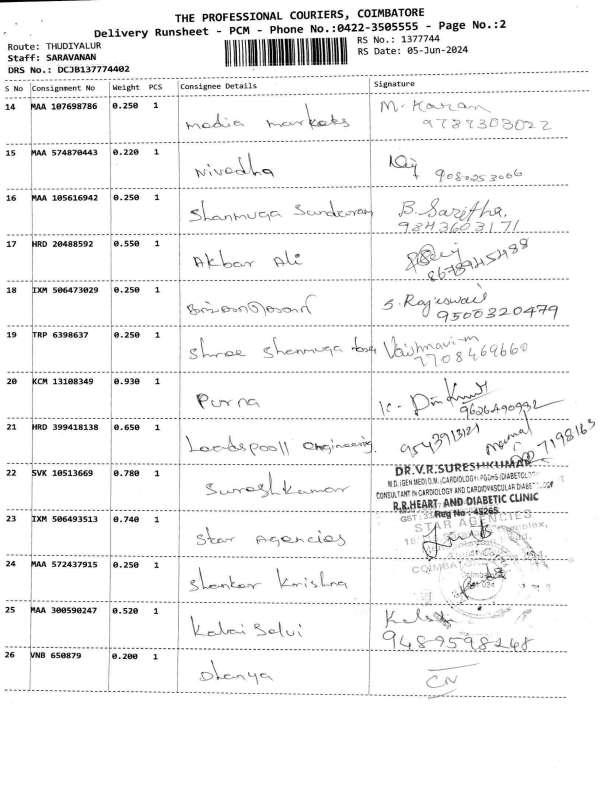 THE PROFESSIONAL COURIERS, COIMBATORE
Delivery Runsheet - PCM - Phone No.:0422-3505555 - Page No.:2
Route: THUDIYALUR
RS No.: 1377744
Staff: SARAVANAN
RS Date: 05-Jun-2024
DRS No.: DCJB137774402
S No Consignment No Weight PCS Consignee Details Signature
14 MAA 107698786 0.250 1 Media Markets M. Karan
9787303022
15 MAA 574870443 0.220 1 Nivedha
9080253006
16 MAA 105616942 0.250 1 Shanmuga Sundaram B. Saritha,
9843603171
17 HRD 20488592 0.550 1 Akbar Ali
8678945488
18 IXM 506473029 0.250 1 S. Rajeswari
9500320479
19 TRP 6398637 0.250 1 Shree Shanmuga Vaishnavi.m
7708469660
20 KCM 13108349 0.930 1 Purna K-
9626490932
21 HRD 399418138 0.650 1 Loadspoall Engineering 9543913121
7198163
22 SVK 10513669 0.780 1 Sureshkumar
DR.V.R.SURESHKUMAR
M.D.(GEN MED) D.M.(CARDIOLOGY)
CONSULTANT IN CARDIOLOGY AND CARDIOVASCULAR
R.R.HEART AND DIABETIC CLINIC
Reg No : 45265
23 IXM 506493513 0.740 1 Star Agencies
STAR AGENCIES
24 MAA 572437915 0.250 1 Shankar Krishna
25 MAA 300590247 0.520 1 Kalai Selvi
9489598248
26 VNB 650879 0.200 1 Dhanya CN